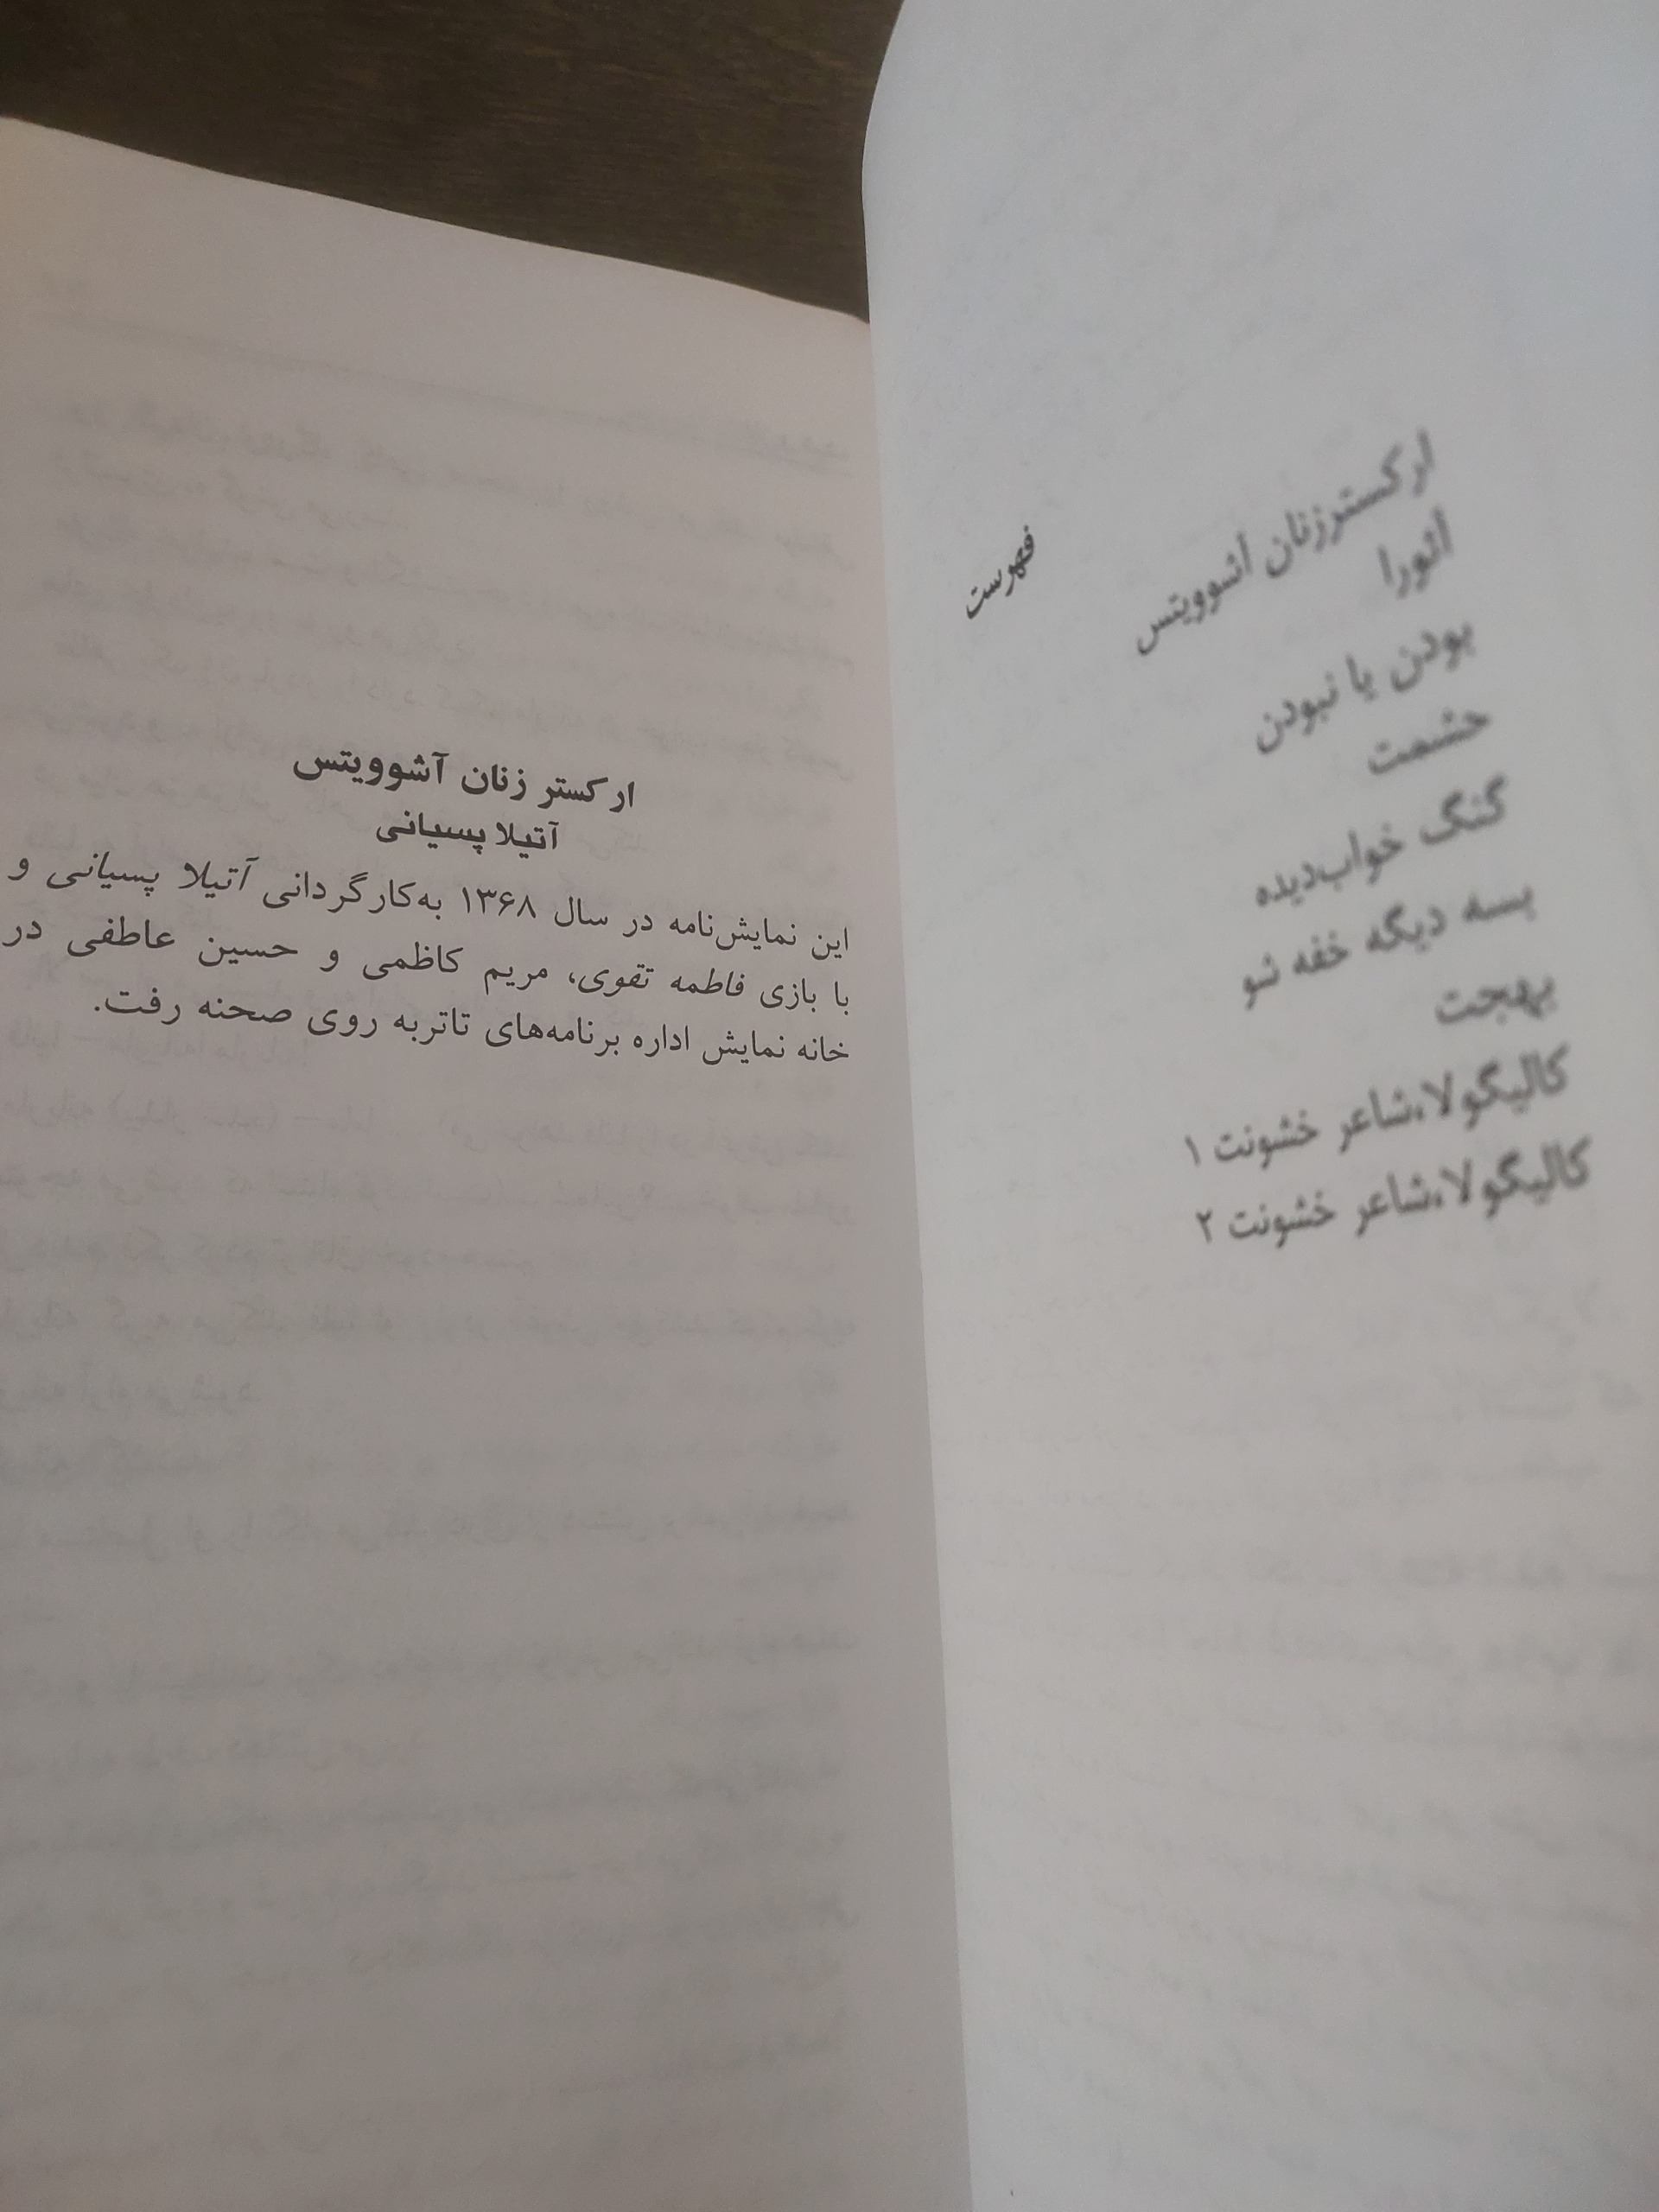 فهرست
ارکستر زنان آشوویتس
آئورا
بودن یا نبودن
حشمت
گنگ خواب‌دیده
بسه دیگه خفه شو
بهجت
کالیگولا،شاعر خشونت ۱
کالیگولا،شاعر خشونت ۲
ارکستر زنان آشوویتس
آتیلا پسیانی
این نمایش‌نامه در سال ۱۳۶۸ به‌کارگردانی آتیلا پسیانی و
با بازی فاطمه تقوی، مریم کاظمی و حسین عاطفی در
خانه نمایش اداره برنامه‌های تاتربه روی صحنه رفت.